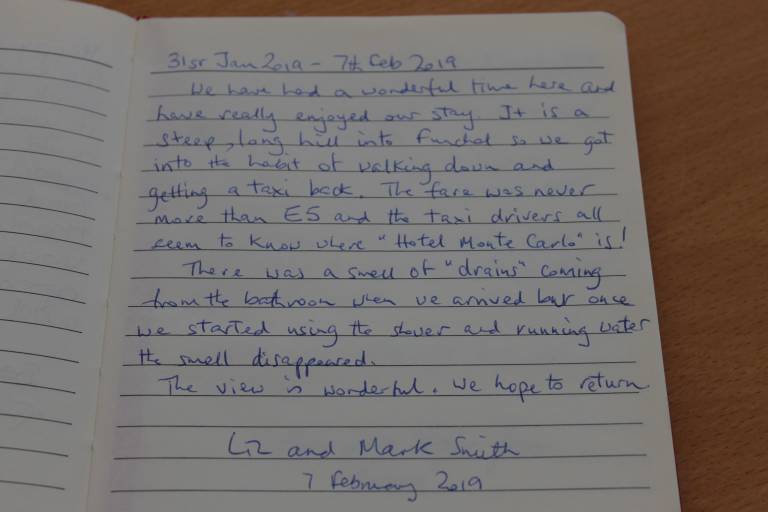 31st Jan 2019 - 7th Feb 2019
We have had a wonderful time here and
have really enjoyed our stay. It is a
steep, long hill into Funchal so we got
into the habit of walking down and
getting a taxi back. The fare was never
more than E5 and the taxi drivers all
seem to know where "Hotel Monte Carlo" is!
There was a smell of "drains" coming
from the bathroom when we arrived but once
we started using the shower and running water
the smell disappeared.
The view is wonderful. We hope to return
Liz and Mark Smith
7 February 2019